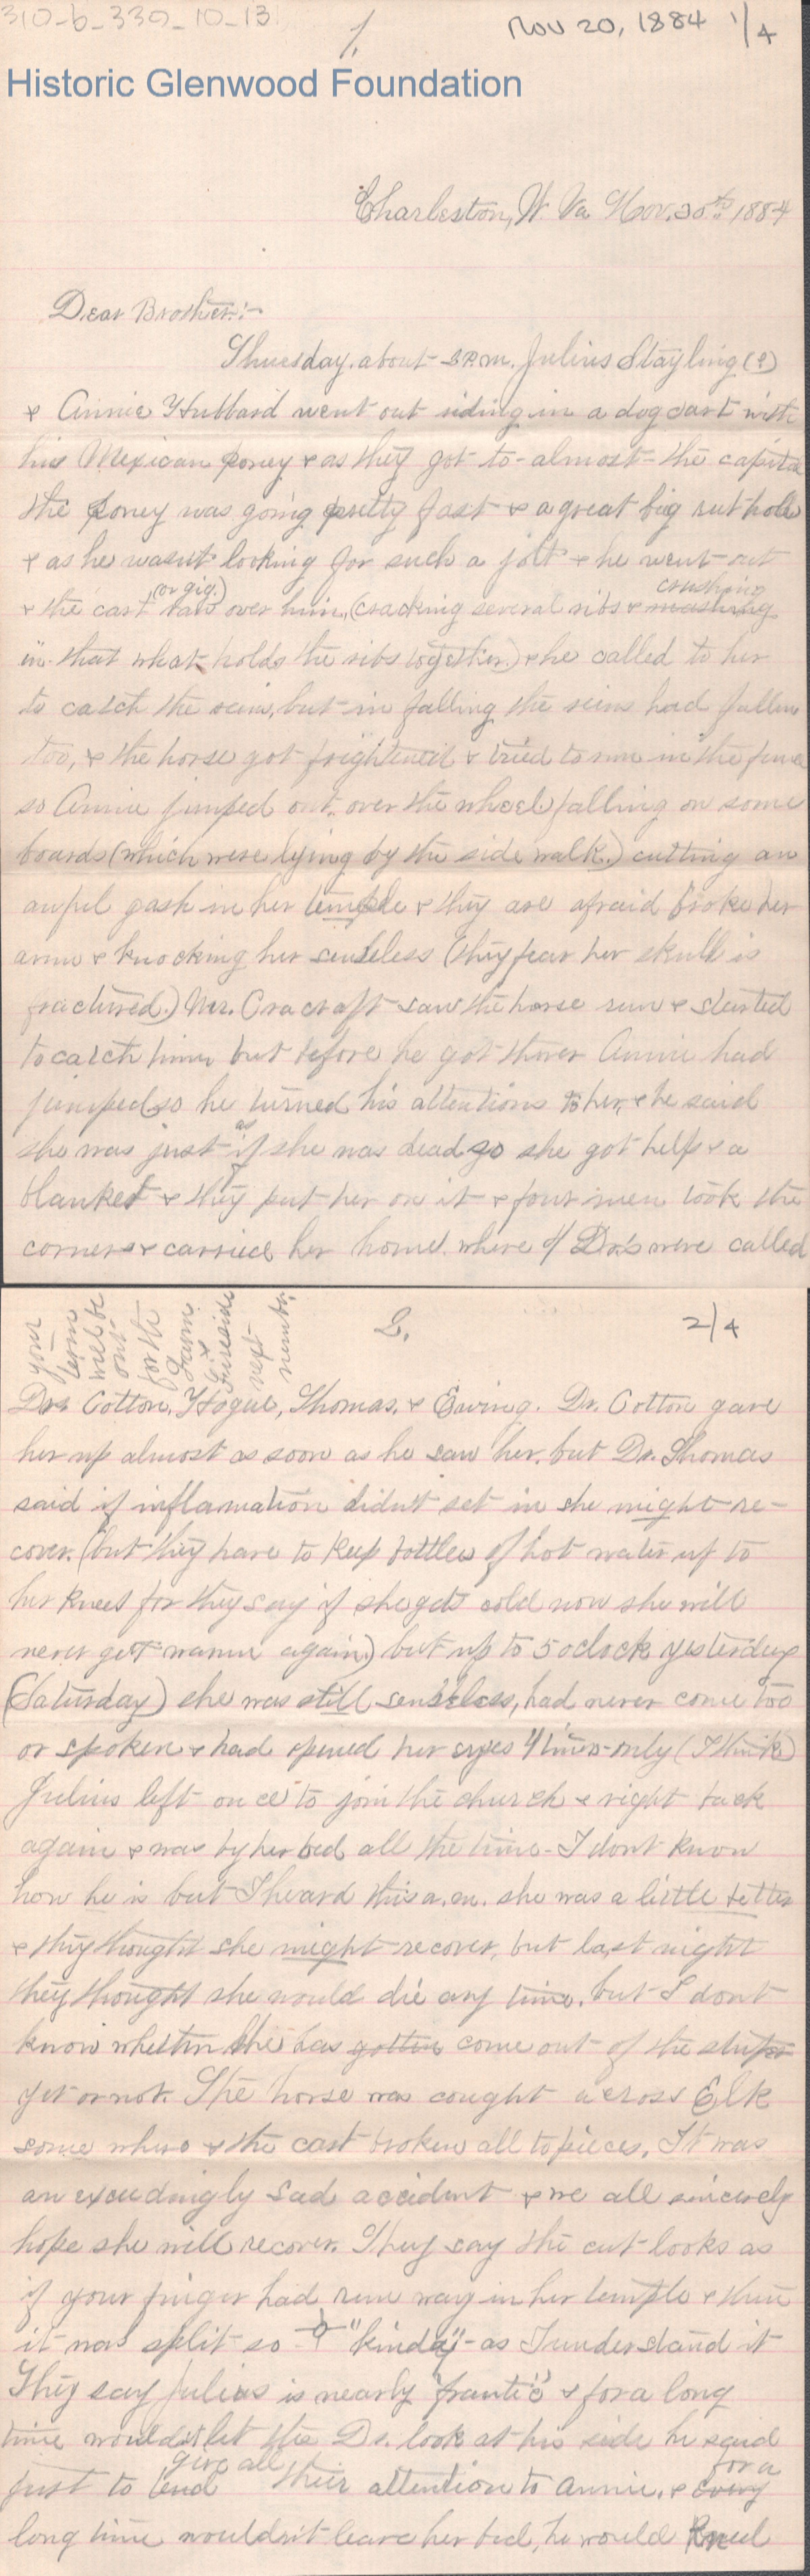 310-b-330-10-13
1.
Nov 20, 1884 1/4
Historic Glenwood Foundation
Charleston, W Va Nov. 30th 1884
Dear Brother:-
Thursday about 3 P.M. Julius Stayling (?)
& Annie Hubbard went out riding in a dog cart with
his Mexican poney & as they got to almost the capitol
the poney was going pretty fast & a great big rut hole
& as he wasnt looking for such a jolt & he went out
& the cart (or gig.) ran over him, (cracking several ribs & mashing crushing
in that what holds the ribs together) & he called to her
to catch the reins, but in falling the reins had fallen
too, & the horse got frightened & tried to run in the fence
so Annie jumped out over the wheel falling on some
boards (which were lying by the side walk.) cutting an
awful gash in her temple & they are afraid broke her
arm & knocking her senseless (they fear her skull is
fractured.) Mr. Cracraft saw the horse run & started
to catch him but before he got there Annie had
jumped so he turned his attentions to her, & he said
she was just as if she was dead so she got help & a
blanket & they put her on it & four men took the
corners & carried her home where 4 Drs were called
2.
2/4
your
term
will be
out
for the
Farm
&
Fireside
next
number.
Drs Cotton, Hogue, Thomas, & Ewing. Dr. Cotton gave
her up almost as soon as he saw her, but Dr. Thomas
said if inflamation didn't set in she might re-
cover. (but they have to keep bottles of hot water up to
her knees for they say if she gets cold now she will
never get warm again) but up to 5 oclock yesterday
(Saturday) she was still senseless, had never come too
or spoken & had opened her eyes 4 times only (I think)
Julius left once to join the church & right back
again & was by her bed all the time. I dont know
how he is but I heard this a.m. she was a little better
& they thought she might recover, but last night
they thought she would die any time, but I dont
know whether she has gotten come out of the stupor
yet or not. The horse was cought across Elk
some where & the cart broken all to pieces. It was
an exceedingly sad accident & we all sincerely
hope she will recover. They say the cut looks as
if your finger had run way in her temple & then
it was split so "kinda"- as I understand it
They say Julius is nearly "frantic" & for a long
time wouldn't let the Dr. look at his side he said
just to lend give all their attention to Annie, & every for a
long time wouldn't leave her bed, he would kneel